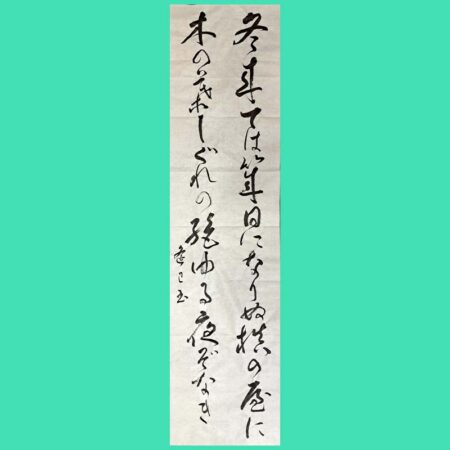 冬来ては幾日になりぬ槙の屋に
木の葉しぐれの絶ゆる夜ぞなき